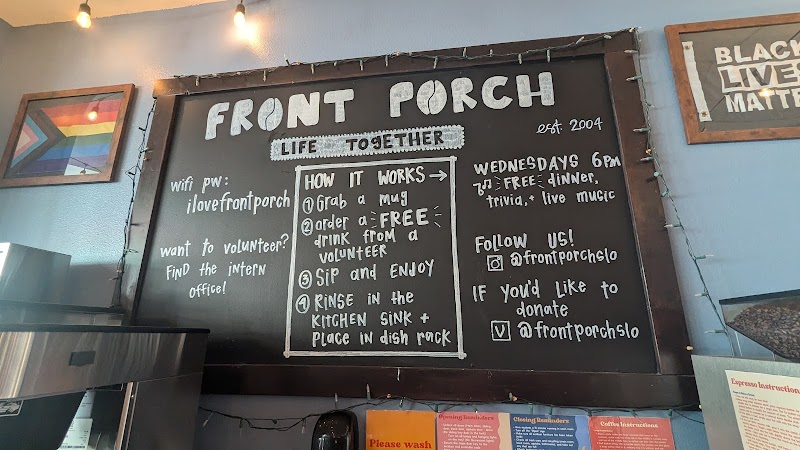 FRONT PORCH
LIFE TOGETHER
est. 2004
wifi pw:
ilovefrontporch
want to volunteer?
FIND the intern
office!
HOW IT WORKS →
① Grab a mug
② order a FREE
drink from a
VOLUNTEER
③ SIP and ENJOY
④ RINSE in the
KITCHEN SINK +
PLACE in dish rack
WEDNESDAYS 6PM
FREE dinner,
trivia, + live music
FOLLOW US!
@frontporchslo
IF YOU'D LIKE to
donate
@frontporchslo
BLACK
LIVES
MATTER
Please wash
Opening Reminders
Closing Reminders
Coffee Instructions
Espresso Instructions